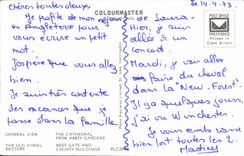 COLOURMASTER
le 14.4.73
chères toutes deux.
Je profite de mon séjour
en Angleterre pour
vous écrire un petit
mot.
J'espère que vous allez
bien.
Je suis très contente
des vacances que je
passe dans la famille
de Laura.
Hier, je suis
allée à un
concert.
Mardi, je vais aller
faire du cheval
dans la "New Forest".
Il y a quelques jours
j'ai vu Winchester.
Je vous embrasse
bien fort toutes les 2.
Martine
POST CARD
Printed in
Great Britain
GENERAL VIEW
THE CATHEDRAL
FROM ABBEY GARDENS
THE OLD CHESIL
RECTORY
WEST GATE AND
COUNTY BUILDINGS